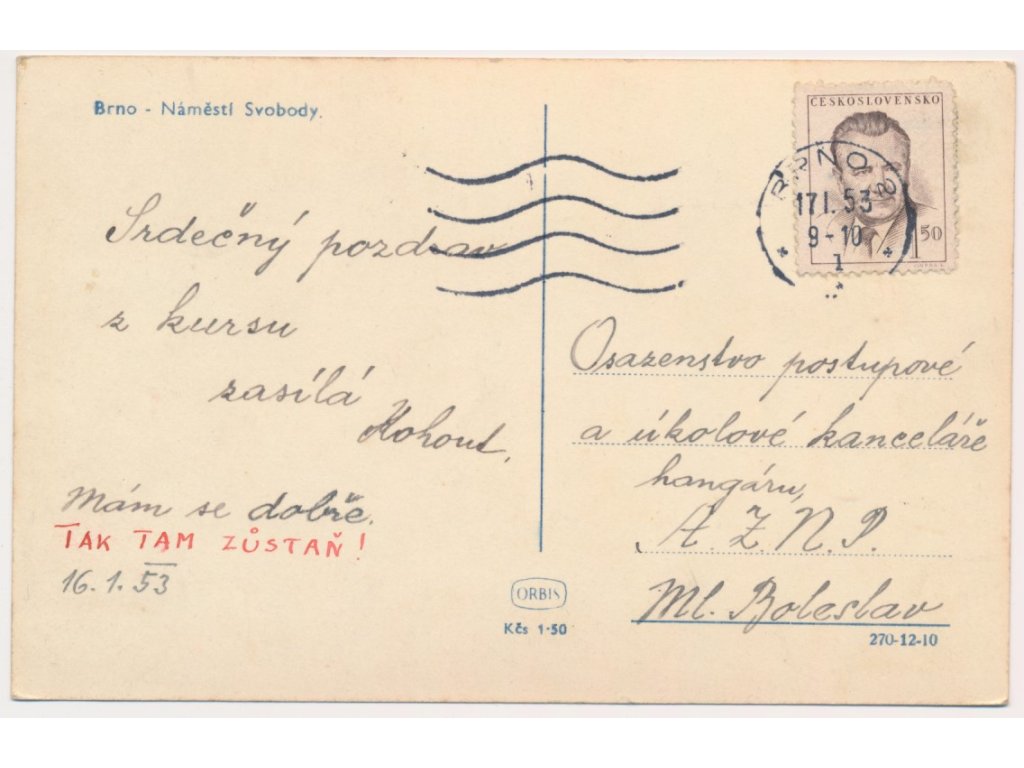 Brno - Náměstí Svobody.
Srdečný pozdrav
z kursu
zasílá
Kohout.
Mám se dobře.
TAK TAM ZŮSTAŇ!
16.1.53
ČESKOSLOVENSKO
1 50
BRNO 2
17 I. 53
9-10
1
Osazenstvo postupové
a úkolové kanceláře
hangáru,
A. Z. N. P.
Ml. Boleslav
ORBIS
Kčs 1·50
270-12-10